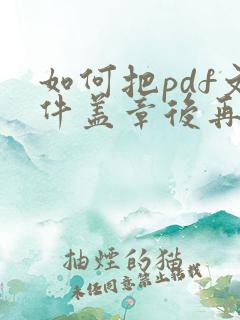 如何把pdf文
件盖章後再
抽煙的猫
未经同意禁止转载